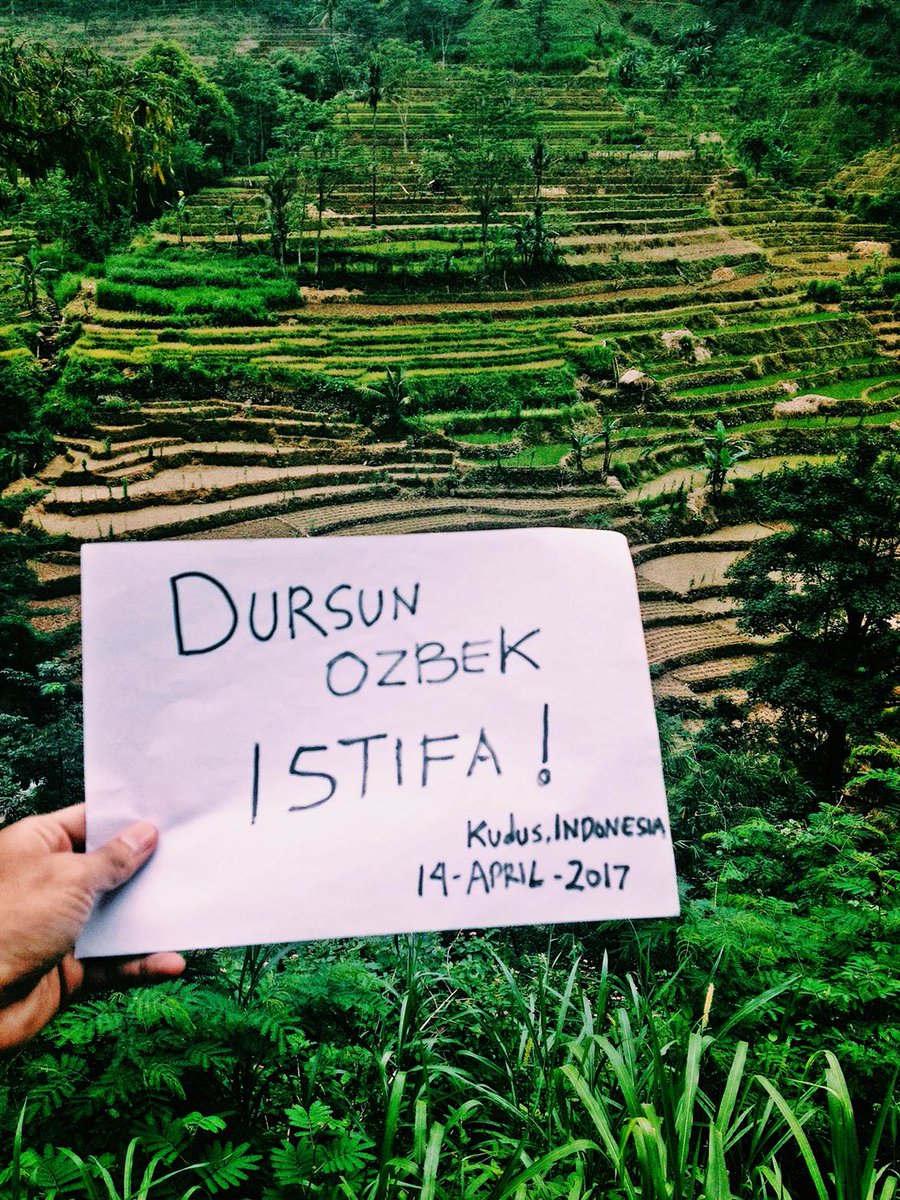 DURSUN
OZBEK
ISTIFA!
KUDUS, INDONESIA
14-APRIL-2017